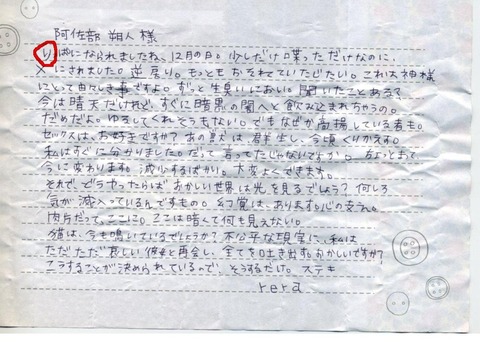 阿佐部 朔人 様
りっぱになられましたね、12月の日。少しだけ喋っただけなのに、
メにされました。逆戻り。もっともおそれていたじたい。これは神様
にとって由々しき事ですよ。ずっと生臭いにおい。聞いたことある?
今は晴天だけれど、すぐに暗黒の闇へと飲みこまれちゃうの。
だめだよ。ゆるしてくれそうもない。でもなぜか高揚している者も。
セックスは、お好きですか? あの獣は、群生し、今頃くりかえす。
私はすぐに分かりました。だって言ってたじゃないですか。ちょっとまって、
今に変わります。減少するばかり。大変よくできます。
それで、どうやったらばおかしい世界は光を見るでしょう? 何しろ
気が滅入っているんですもの。幻覚は、あります。心の支え。
肉片だって、ここに。ここは暗くて何も見えない。
猫は、今も鳴いているでしょうか? 不公平な現実に、私は
ただただ 哀しい 彼女と再会し、全てを吐き出す。おかしいですか?
こうすることが決められているので、そうするだけ。ステキ
rera